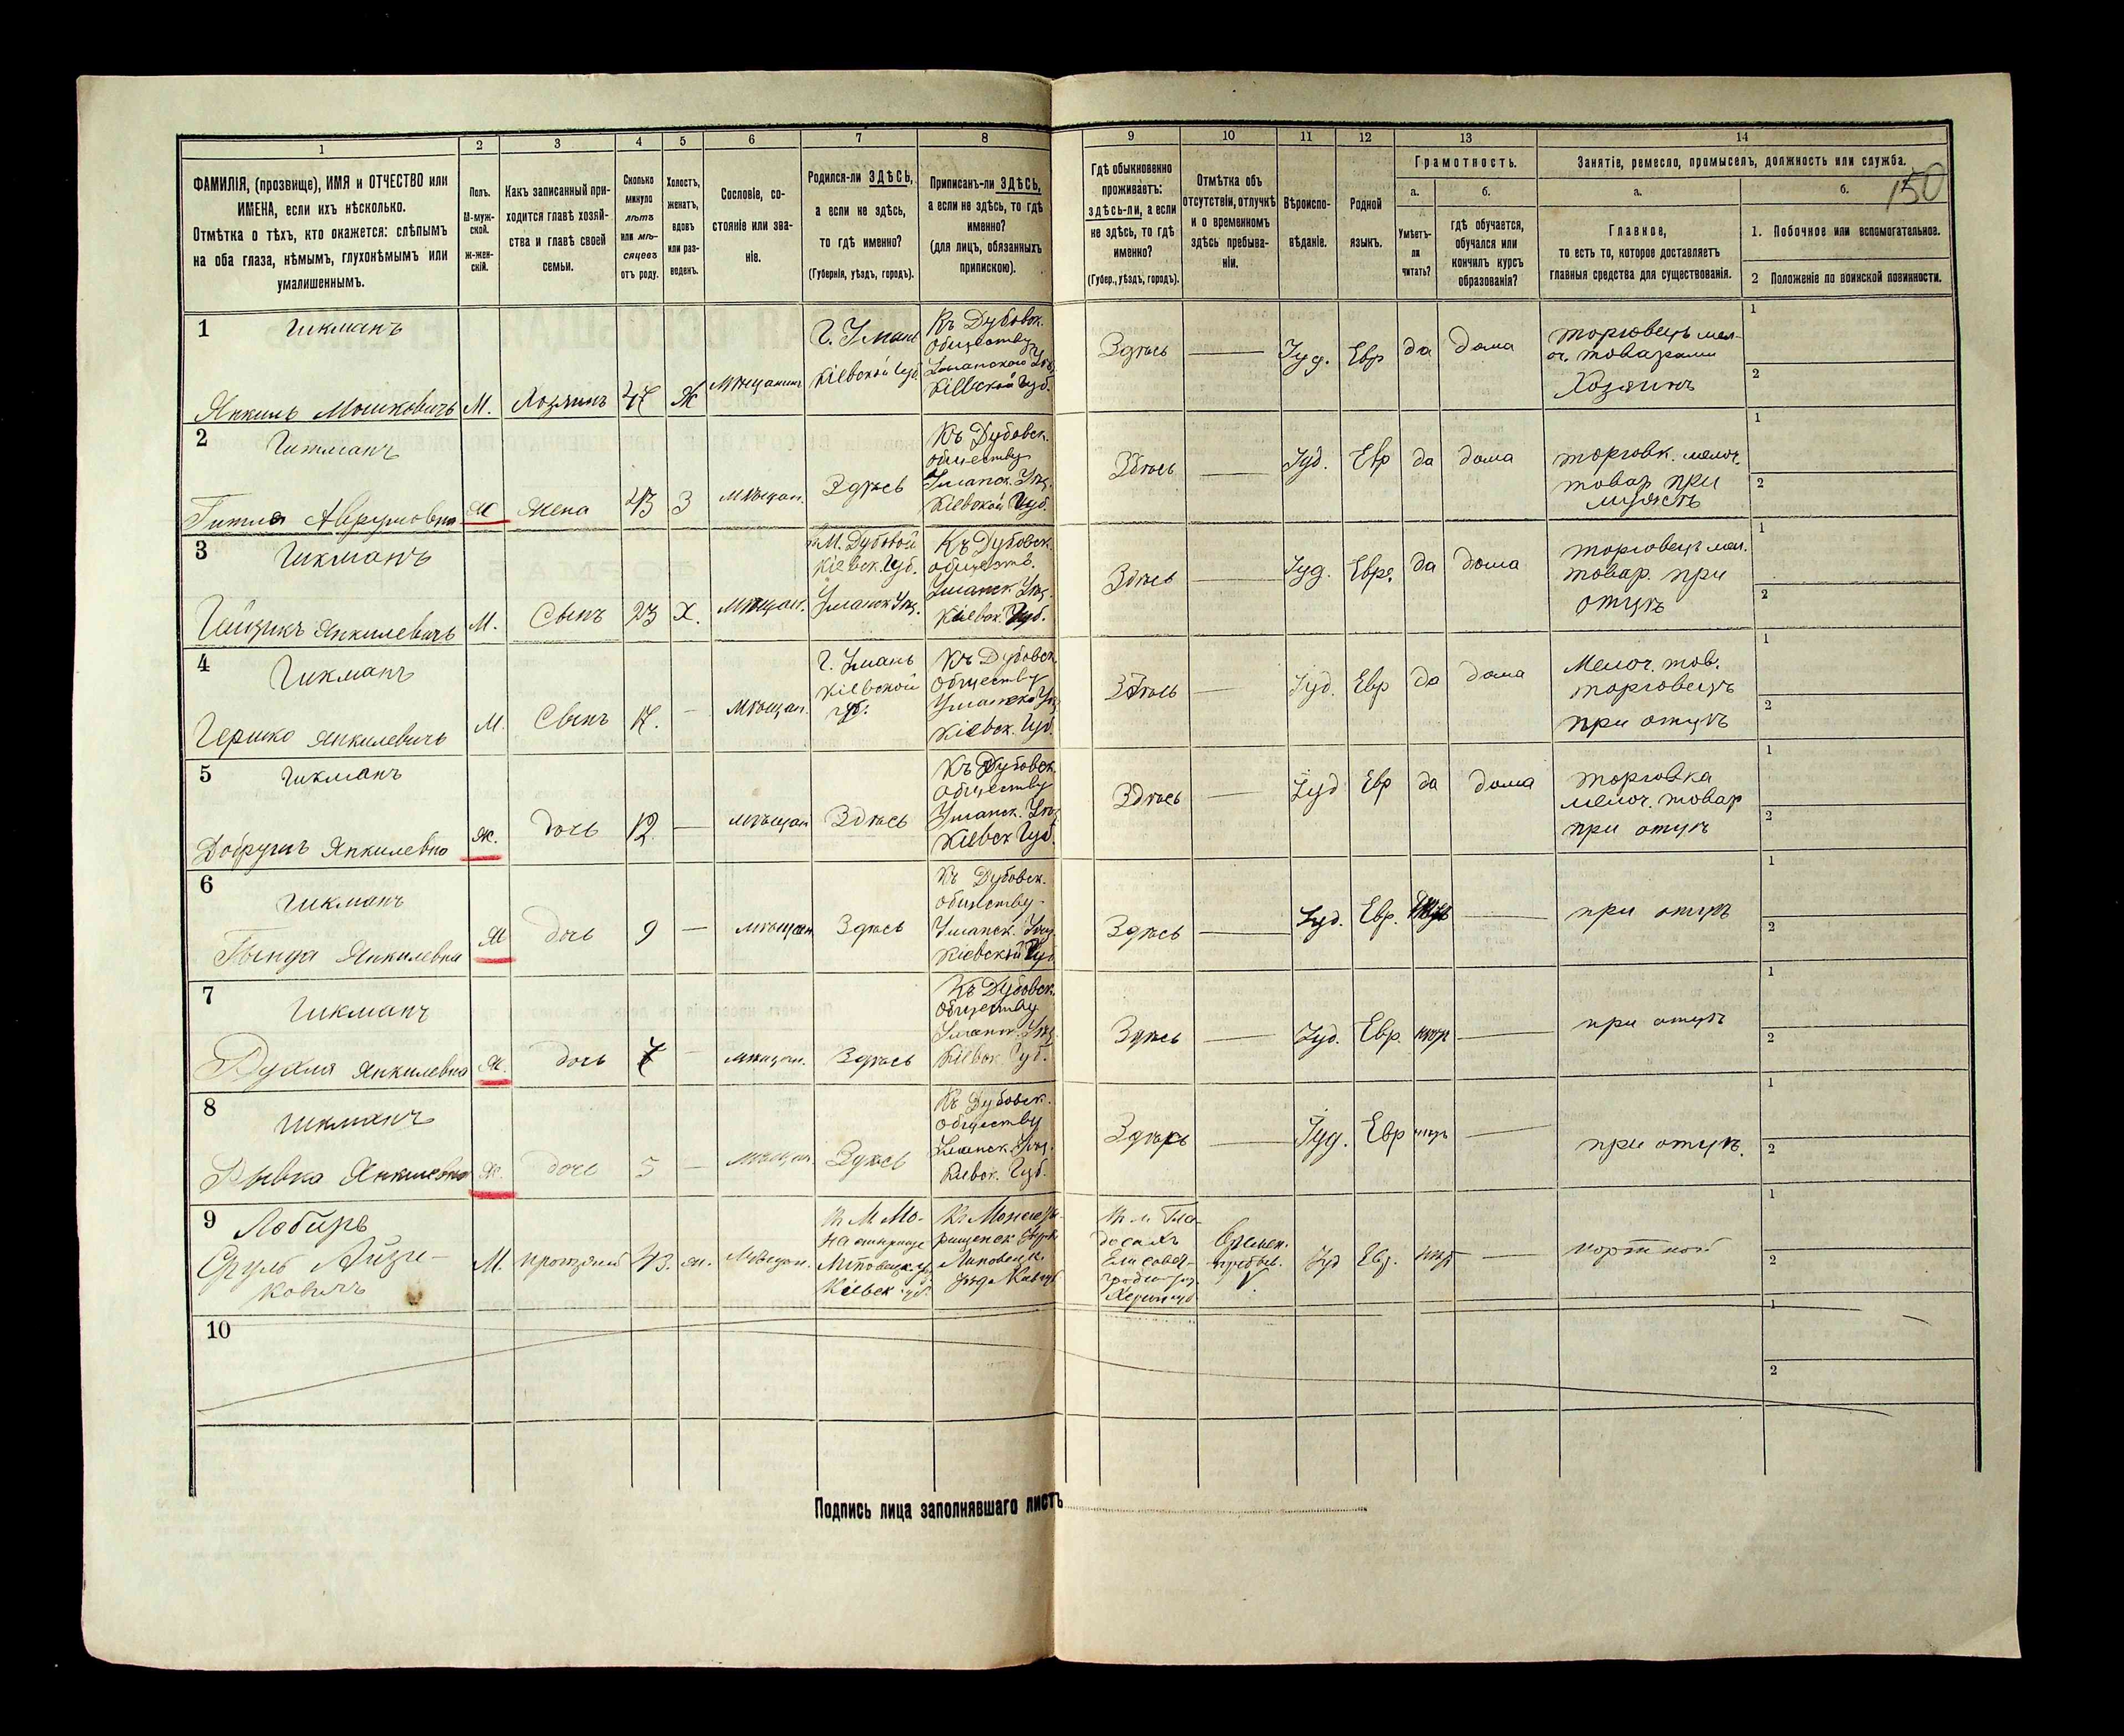 1
2
3
4
5
6
7
8
9
10
11
12
13
14
ФАМИЛІЯ, (прозвище), ИМЯ и ОТЧЕСТВО или
ИМЕНА, если ихъ нѣсколько.
Отмѣтка о тѣхъ, кто окажется: слѣпымъ
на оба глаза, нѣмымъ, глухонѣмымъ или
умалишеннымъ.
Полъ.
М-муж-
ской.
ж-жен-
скій.
Какъ записанный при-
ходится главѣ хозяй-
ства и главѣ своей
семьи.
Сколько
минуло
лѣтъ
или мѣ-
сяцевъ
отъ роду.
Холостъ,
женатъ,
вдовъ
или раз-
веденъ.
Сословіе, со-
стояніе или зва-
ніе.
Родился-ли ЗДѢСЬ,
а если не здѣсь,
то гдѣ именно?
(Губернія, уѣздъ, городъ).
Приписанъ-ли ЗДѢСЬ,
а если не здѣсь, то гдѣ
именно?
(для лицъ, обязанныхъ
припискою).
Гдѣ обыкновенно
проживаетъ:
здѣсь-ли, а если
не здѣсь, то гдѣ
именно?
(Губер., уѣздъ, городъ).
Отмѣтка объ
отсутствіи, отлучкѣ
и о временномъ
здѣсь пребыва-
ніи.
Вѣроиспо-
вѣданіе.
Родной
языкъ.
Грамотность.
а.
Умѣетъ-
ли
читать?
б.
гдѣ обучается,
обучался или
кончилъ курсъ
образованія?
Занятіе, ремесло, промыселъ, должность или служба.
150
а.
Главное,
то есть то, которое доставляетъ
главныя средства для существованія.
б.
1. Побочное или вспомогательное.
2 Положеніе по воинской повинности.
1
Гикманъ
Янкиль Мошковичъ
М.
Хозяинъ
47
Ж
Мѣщанинъ
Г. Умань
Кіевской Губ.
Къ Дубовск.
обществу
Уманскаго Уѣз.
Кіевской Губ.
Здѣсь
Іуд.
Евр
да
дома
торговецъ мел-
оч. товарами
Хозяинъ
1
2
2
Гикманъ
Гитля Аврумовна
Ж
Жена
43
З
Мѣщан.
Здѣсь
Къ Дубовск.
обществу
Уманск. Уѣз.
Кіевской Губ.
Здѣсь
Іуд.
Евр
да
дома
торговк. мелоч.
товар. при
мужѣ
1
2
3
Гикманъ
Янкилевичъ
М.
Сынъ
23
Х.
Мѣщан.
М. Дубовой
Кіевск. Губ.
Уманск. Уѣз.
Къ Дубовск.
обществ.
Уманск. Уѣз.
Кіевск. Губ.
Здѣсь
Іуд.
Евр.
да
дома
торговецъ мел.
товар. при
отцѣ
1
2
4
Гикманъ
Гершко Янкилевичъ
М.
Сынъ
17.
Мѣщан.
Г. Умань
Кіевской
губ.
Къ Дубовск.
обществу
Уманск. Уѣз.
Кіевск. Губ.
Здѣсь
Іуд.
Евр
да
дома
Мелоч. тов.
торговецъ
при отцѣ
1
2
5
Гикманъ
Янкилевна
ж.
дочь
12
мѣщан
Здѣсь
Къ Дубовск.
обществу
Уманск. Уѣз.
Кіевск Губ.
Здѣсь
Іуд
Евр
да
дома
торговка
мелоч. товар
при отцѣ
1
2
6
Гикманъ
Янкилевна
Ж
дочь
9
мѣщан
Здѣсь
Къ Дубовск.
обществу
Уманск. Уѣз.
Кіевской Губ
Здѣсь
Іуд.
Евр.
при отцѣ
1
2
7
Гикманъ
Рухля Янкилевна
Ж.
дочь
7
мѣщан.
Здѣсь
Къ Дубовск.
обществу
Уманск. Уѣз.
Кіевск. Губ.
Здѣсь
Іуд.
Евр.
нѣтъ
при отцѣ
1
2
8
Гикманъ
Рывка Янкилевна
Ж.
дочь
5
Мѣщан.
Здѣсь
Къ Дубовск.
обществу
Уманск. Уѣз.
Кіевск. Губ.
Здѣсь
Іуд.
Евр
нѣтъ
при отцѣ.
1
2
9
Сруль Айзи-
ковичъ
М.
43.
ж.
Мѣщан.
Кіевск губ.
Липовецк.
Елисавет-
Времен.
пребыв.
Іуд
Евр.
нѣтъ
портной
1
2
10
1
2
Подпись лица заполнявшаго листъ